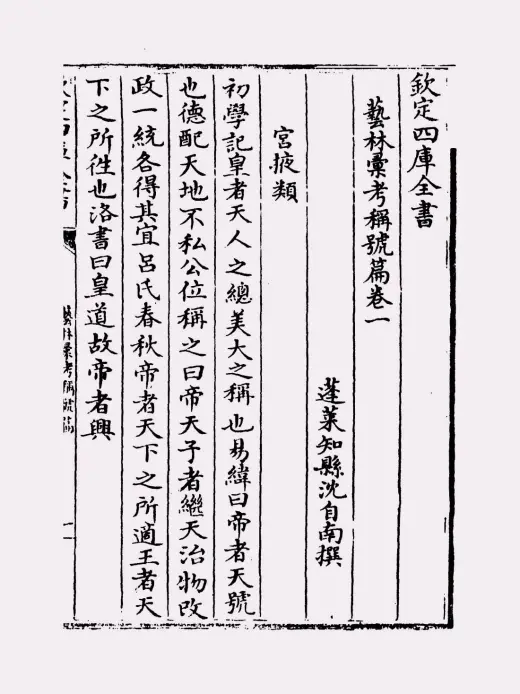 欽定四庫全書
藝林彙考稱號篇卷一
蓬萊知縣沈自南撰
宮掖類
初學記皇者天人之總美大之稱也易緯曰帝者天號
也德配天地不私公位稱之曰帝天子者繼天治物改
政一統各得其宜呂氏春秋帝者天下之所適王者天
下之所徃也洛書曰皇道故帝者興